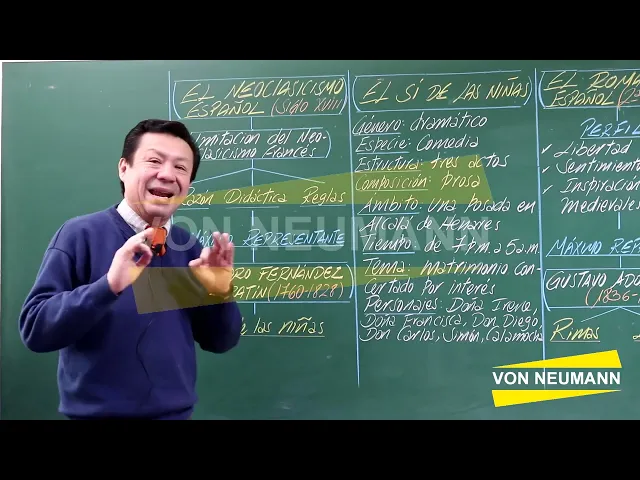 EL NEOCLASICISMO
ESPAÑOL (SIGLO XVIII)
Imitación del Neo-
clasicismo Francés
Razón Didáctica Reglas
Máximo REPRESENTANTE
FERNÁNDEZ
(1760-1828)
las niñas
EL SÍ DE LAS NIÑAS
Género: dramático
Especie: Comedia
Estructura: tres actos
Composición: prosa
Ámbito: una posada en
Alcalá de Henares
Tiempo de 7 p.m a 5 a.m.
Tema: matrimonio con-
certado Por interés
Personajes: Doña Irene,
Doña Francisca, Don Diego,
Don Carlos, Simón, Calamocha
EL ROMA
ESPAÑOL
PERFIL
✓ Libertad
✓ Sentimiento
✓ Inspiración
Medievales
MÁXIMO REP
GUSTAVO ADO
(1836-
Rimas
VON NEUMANN
VON NEUMANN